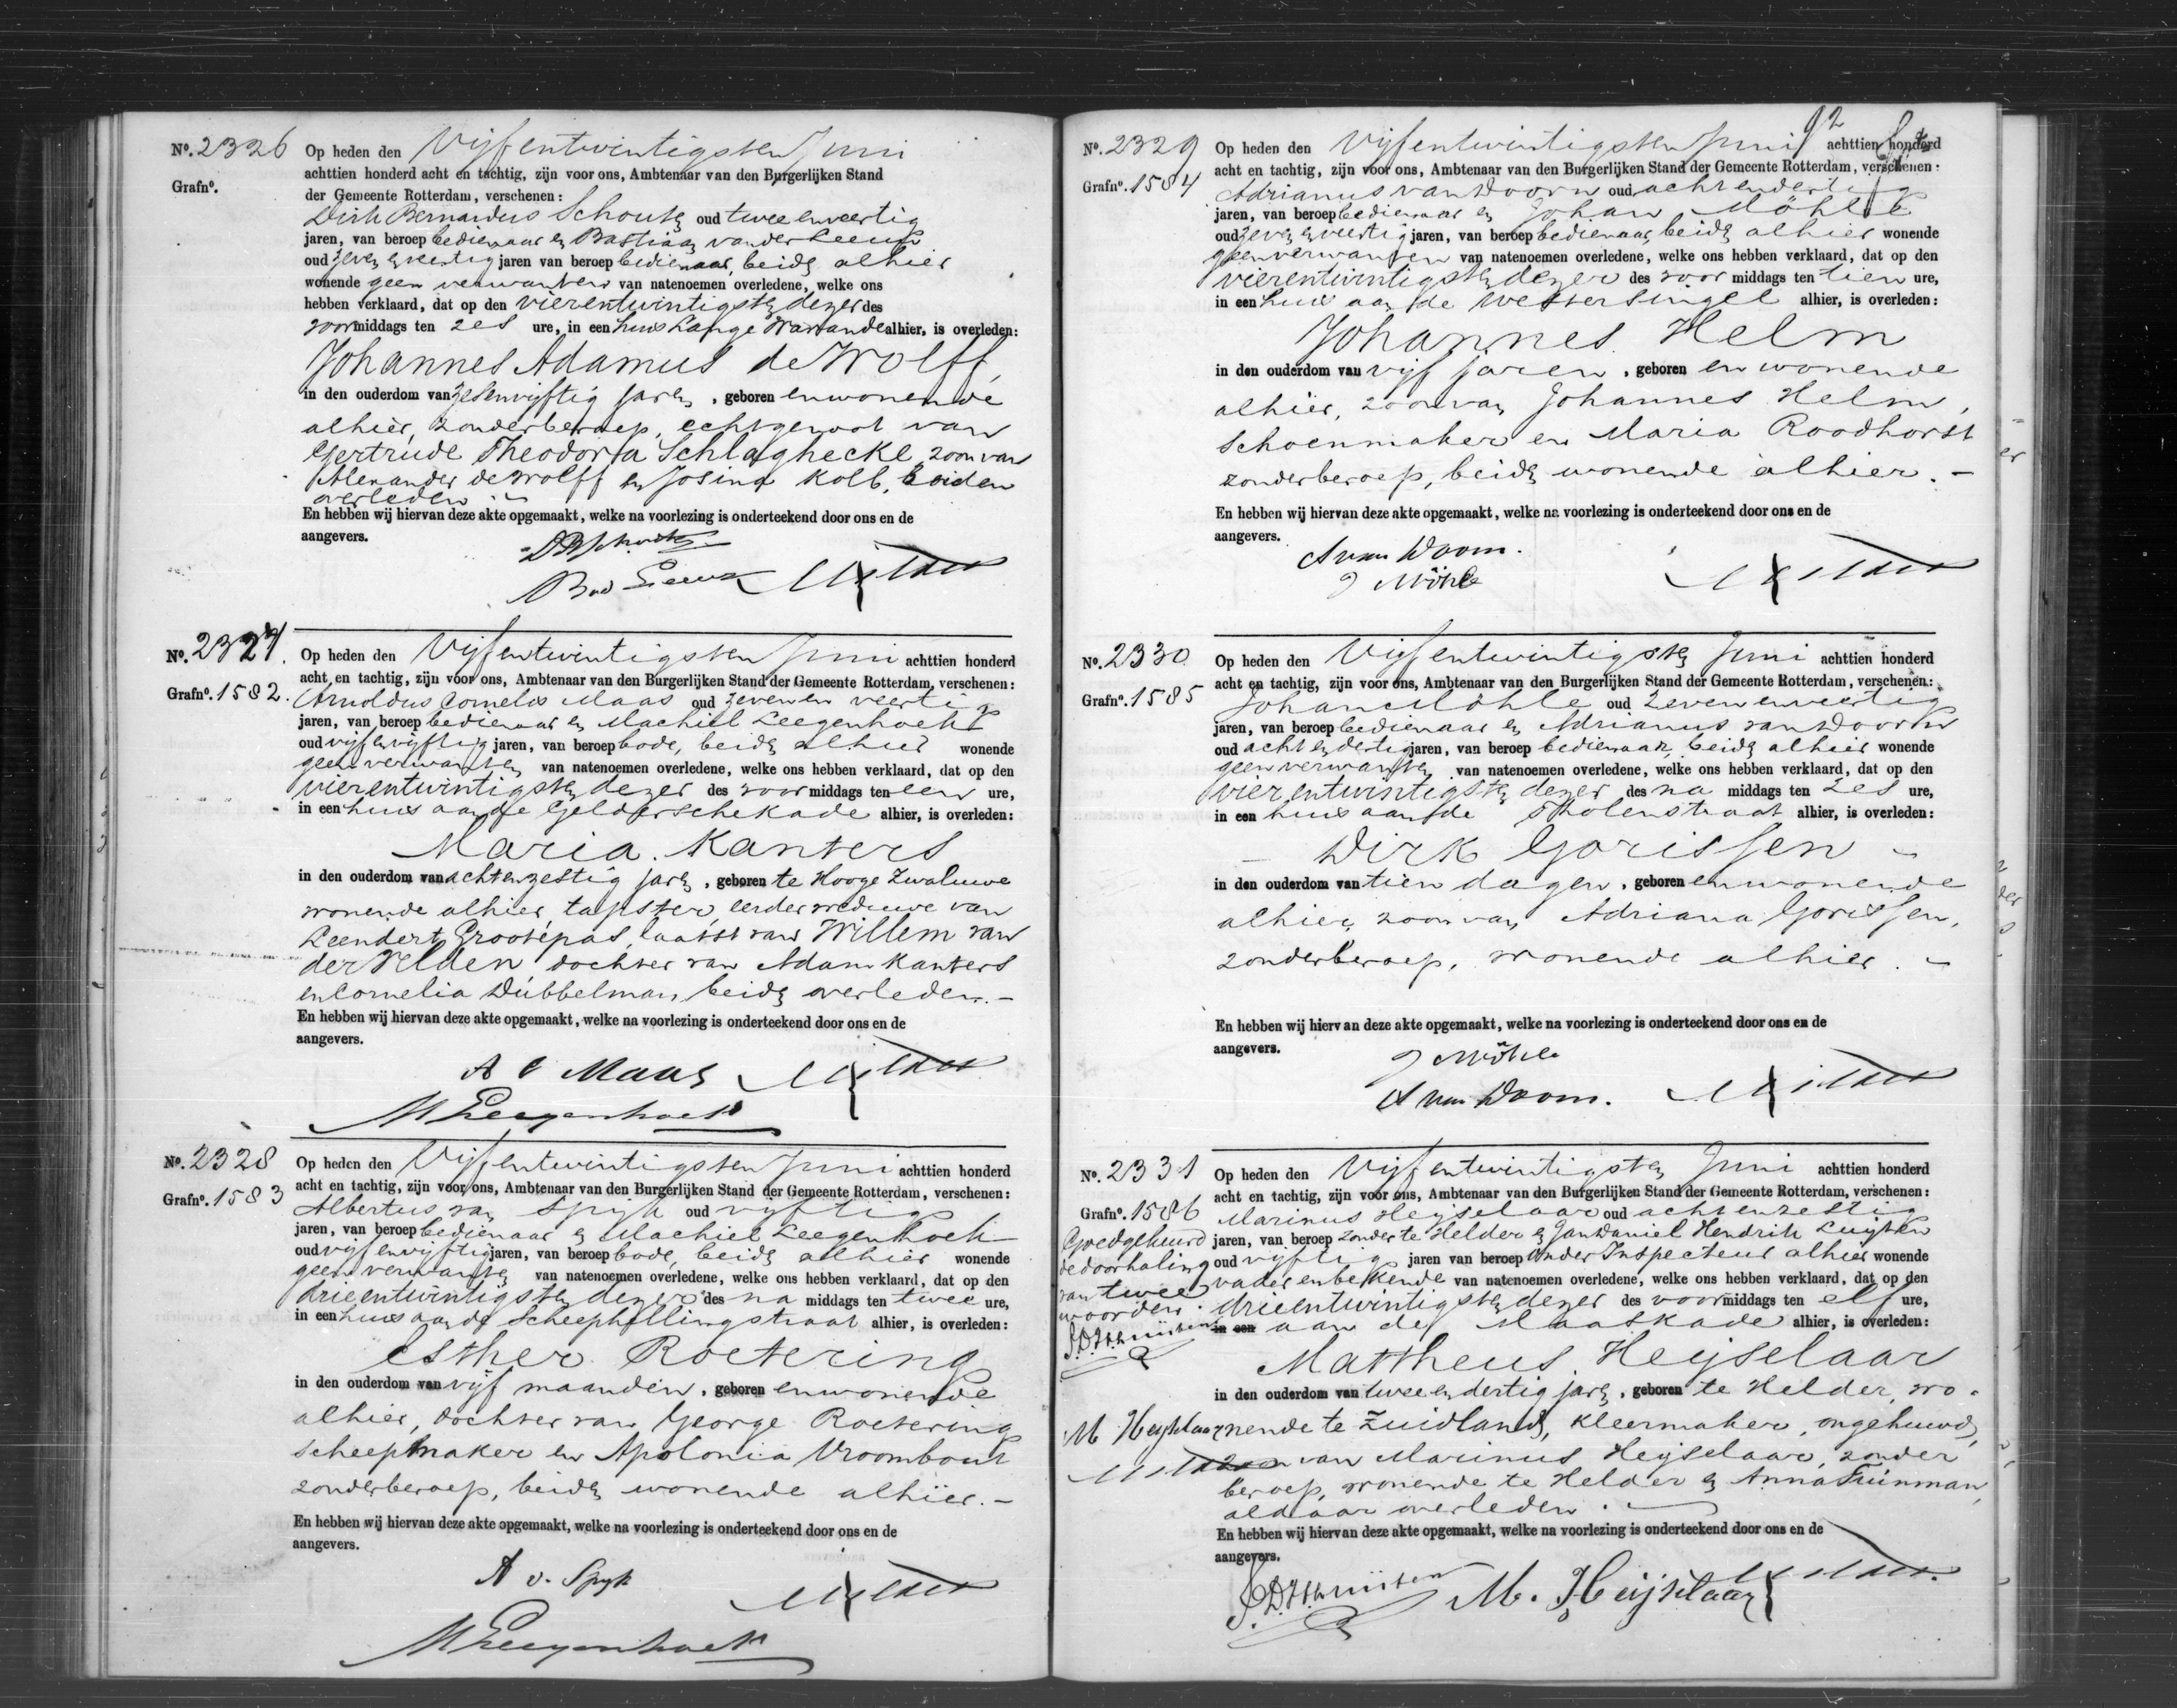 Nº. 2326 Op heden den Vijfentwintigsten Juni
achttien honderd acht en tachtig, zijn voor ons, Ambtenaar van den Burgerlijken Stand
Grafnº.
der Gemeente Rotterdam, verschenen:
Dirk Bernardus Schouts oud twee en veertig
jaren, van beroep bedienaar en Bastiaan van der Leeuw
oud zeven en veertig jaren van beroep bedienaar, beiden alhier
wonende geen verwanten van natenoemen overledene, welke ons
hebben verklaard, dat op den vierentwintigsten dezer des
voormiddags ten zes ure, in een huis Lange Warande alhier, is overleden:
Johannes Adamus de Wolff,
in den ouderdom van zesenvijftig jaren, geboren en wonende
alhier, zonder beroep, echtgenoot van
Gertrude Theodora Schlaghecke, zoon van
Alexander de Wolff en Josina Kolb, beiden
overleden
En hebben wij hiervan deze akte opgemaakt, welke na voorlezing is onderteekend door ons en de
aangevers.
DBSchouts
Bvd Leeuw
Nº. 2327. Op heden den Vijfentwintigsten Juni achttien honderd
acht en tachtig, zijn voor ons, Ambtenaar van den Burgerlijken Stand der Gemeente Rotterdam, verschenen:
Grafnº. 1582. Arnoldus Cornelis Maas oud zeven en veertig
jaren, van beroep bedienaar en Machiel Leegenhoek
oud vijf en vijftig jaren, van beroep bode, beiden alhier wonende
geen verwanten van natenoemen overledene, welke ons hebben verklaard, dat op den
vierentwintigsten dezer des voormiddags ten een ure,
in een huis aan de Gelderschekade alhier, is overleden:
Maria Kanters
in den ouderdom van achtenzestig jaren, geboren te Hooge Zwaluwe
wonende alhier, tapster, eerder weduwe van
Leendert Grootepas, laatst van Willem van
der Velden, dochter van Adam Kanters
en Cornelia Dubbelman, beiden overleden.-
En hebben wij hiervan deze akte opgemaakt, welke na voorlezing is onderteekend door ons en de
aangevers.
A C Maas
MLeegenhoek
Nº. 2328 Op heden den Vijfentwintigsten Juni achttien honderd
acht en tachtig, zijn voor ons, Ambtenaar van den Burgerlijken Stand der Gemeente Rotterdam, verschenen:
Grafnº. 1583 Albertus van Spijk oud vijftig
jaren, van beroep bedienaar en Machiel Leegenhoek
oud vijf en vijftig jaren, van beroep bode, beiden alhier wonende
geen verwanten van natenoemen overledene, welke ons hebben verklaard, dat op den
drieentwintigsten dezer des na middags ten twee ure,
in een huis aan de Scheephellingstraat alhier, is overleden:
Esther Roetering
in den ouderdom van vijf maanden, geboren en wonende
alhier, dochter van George Roetering
scheepmaker en Apolonia Vroombout
zonder beroep, beiden wonende alhier.-
En hebben wij hiervan deze akte opgemaakt, welke na voorlezing is onderteekend door ons en de
aangevers.
A v. Spijk
MLeegenhoek
92
Nº. 2329 Op heden den Vijfentwintigsten Juni achttien honderd
acht en tachtig, zijn voor ons, Ambtenaar van den Burgerlijken Stand der Gemeente Rotterdam, verschenen:
Grafnº. 1584 Adrianus van Doorn oud achtendertig
jaren, van beroep bedienaar en Johan Möhle
oud zeven en veertig jaren, van beroep bedienaar, beiden alhier wonende
geen verwanten van natenoemen overledene, welke ons hebben verklaard, dat op den
vierentwintigsten dezer des voor middags ten tien ure,
in een huis aan de Westersingel alhier, is overleden:
Johannes Helm
in den ouderdom van vijf jaren, geboren en wonende
alhier, zoon van Johannes Helm,
schoenmaker en Maria Roodhorst
zonder beroep, beiden wonende alhier.-
En hebben wij hiervan deze akte opgemaakt, welke na voorlezing is onderteekend door ons en de
aangevers.
A van Doorn.
J Möhle
Nº. 2330 Op heden den Vijfentwintigsten Juni achttien honderd
acht en tachtig, zijn voor ons, Ambtenaar van den Burgerlijken Stand der Gemeente Rotterdam, verschenen:
Grafnº. 1585 Johan Möhle oud zeven en veertig
jaren, van beroep bedienaar en Adrianus van Doorn
oud acht en dertig jaren, van beroep bedienaar, beiden alhier wonende
geen verwanten van natenoemen overledene, welke ons hebben verklaard, dat op den
vierentwintigsten dezer des na middags ten zes ure,
in een huis aan de Tholenstraat alhier, is overleden:
- Dirk Gorissen -
in den ouderdom van tien dagen, geboren en wonende
alhier, zoon van Adriana Gorissen,
zonder beroep, wonende alhier.-
En hebben wij hiervan deze akte opgemaakt, welke na voorlezing is onderteekend door ons en de
aangevers.
J Möhle
A van Doorn.
Nº. 2331 Op heden den Vijfentwintigsten Juni achttien honderd
acht en tachtig, zijn voor ons, Ambtenaar van den Burgerlijken Stand der Gemeente Rotterdam, verschenen:
Grafnº. 1586 Marinus Heijselaar oud achtenzestig
jaren, van beroep zonder te Helder en Jan Daniel Hendrik Luijten
oud vijftig jaren van beroep Onder Inspecteur alhier wonende
vader en bekende van natenoemen overledene, welke ons hebben verklaard, dat op den
drieentwintigsten dezer des voormiddags ten elf ure,
in een aan de Maaskade alhier, is overleden:
Goedgekeurd
de doorhaling
van twee
woorden.
Mattheus Heijselaar
in den ouderdom van twee en dertig jaren, geboren te Helder, wo-
nende te Zuidland, kleermaker, ongehuwd,
M Heijselaar
zoon van Marinus Heijselaar, zonder
beroep, wonende te Helder en Anna Tuinman,
aldaar overleden.
En hebben wij hiervan deze akte opgemaakt, welke na voorlezing is onderteekend door ons en de
aangevers.
M. Heijselaar